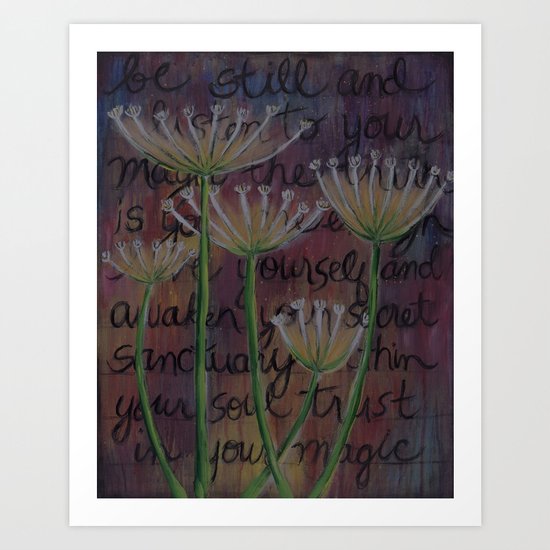 be still and
listen to your
magic the
is you
yourself and
awaken your secret
sanctuary within
your soul trust
in your magic